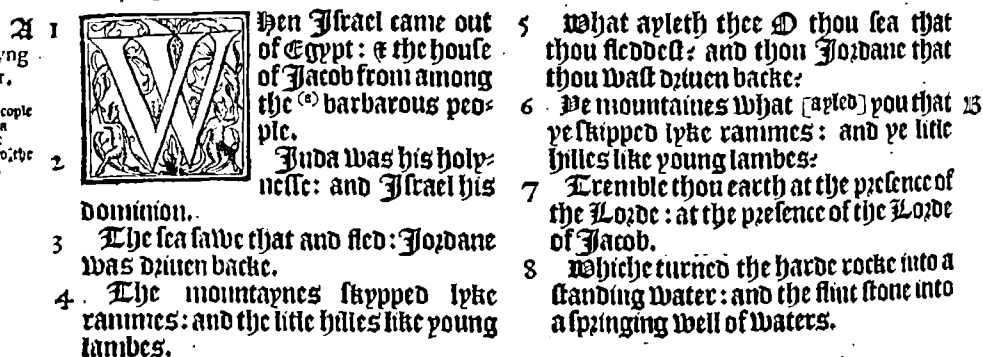 A 1 WHen Iſrael came out
of Egypt: & the houſe
of Jacob from among
the (a) barbarous peo-
ple.
2 Juda was his holy-
neſſe: and Iſrael his
dominion.
3 The ſea ſawe that and fled: Jordane
was driuen backe.
4 The mountaynes ſkypped lyke
rammes: and the litle hilles like young
lambes.
5 What ayleth thee O thou ſea that
thou fleddeſt? and thou Jordane that
thou waſt driuen backe?
6 Ye mountaines what [ayled] you that B
ye ſkipped lyke rammes: and ye litle
hilles like young lambes?
7 Tremble thou earth at the preſence of
the Lorde: at the preſence of the Lorde
of Jacob.
8 Whiche turned the harde rocke into a
ſtanding water: and the flint ſtone into
a ſpringing well of waters.